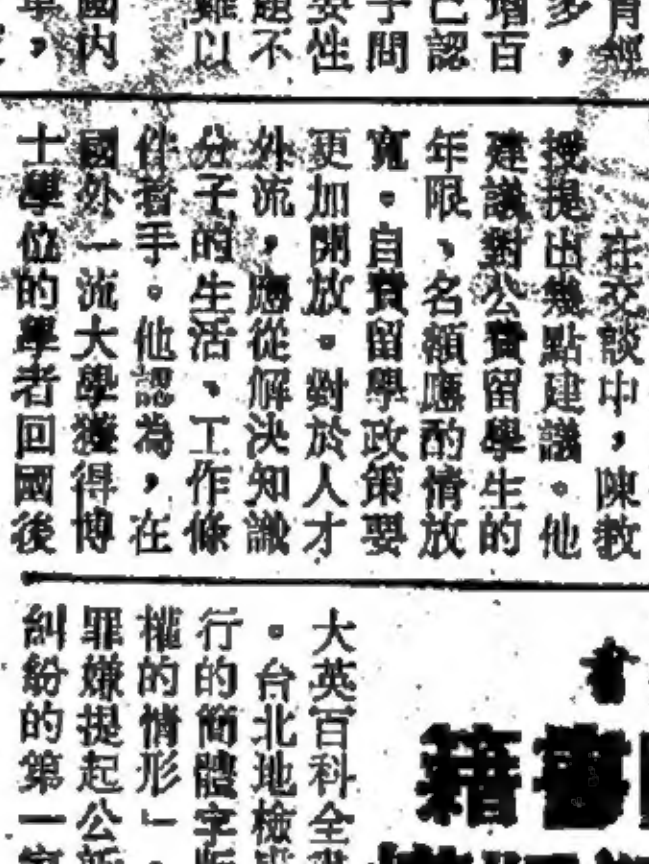 增百
已認
子間
性
題不
難以
國內
在交談中，陳教
授提出幾點建議。他
建議對公費留學生的
年限、名額應酌情放
寬。自費留學政策要
更加開放。對於人才
外流，應從解決知識
分子的生活、工作條
件着手。他認為，在
國外一流大學獲得博
士學位的學者回國後
籍書
大英百科全
。台北地檢
行的簡體字版
權的情形」，
罪嫌提起公訴
糾紛的第一